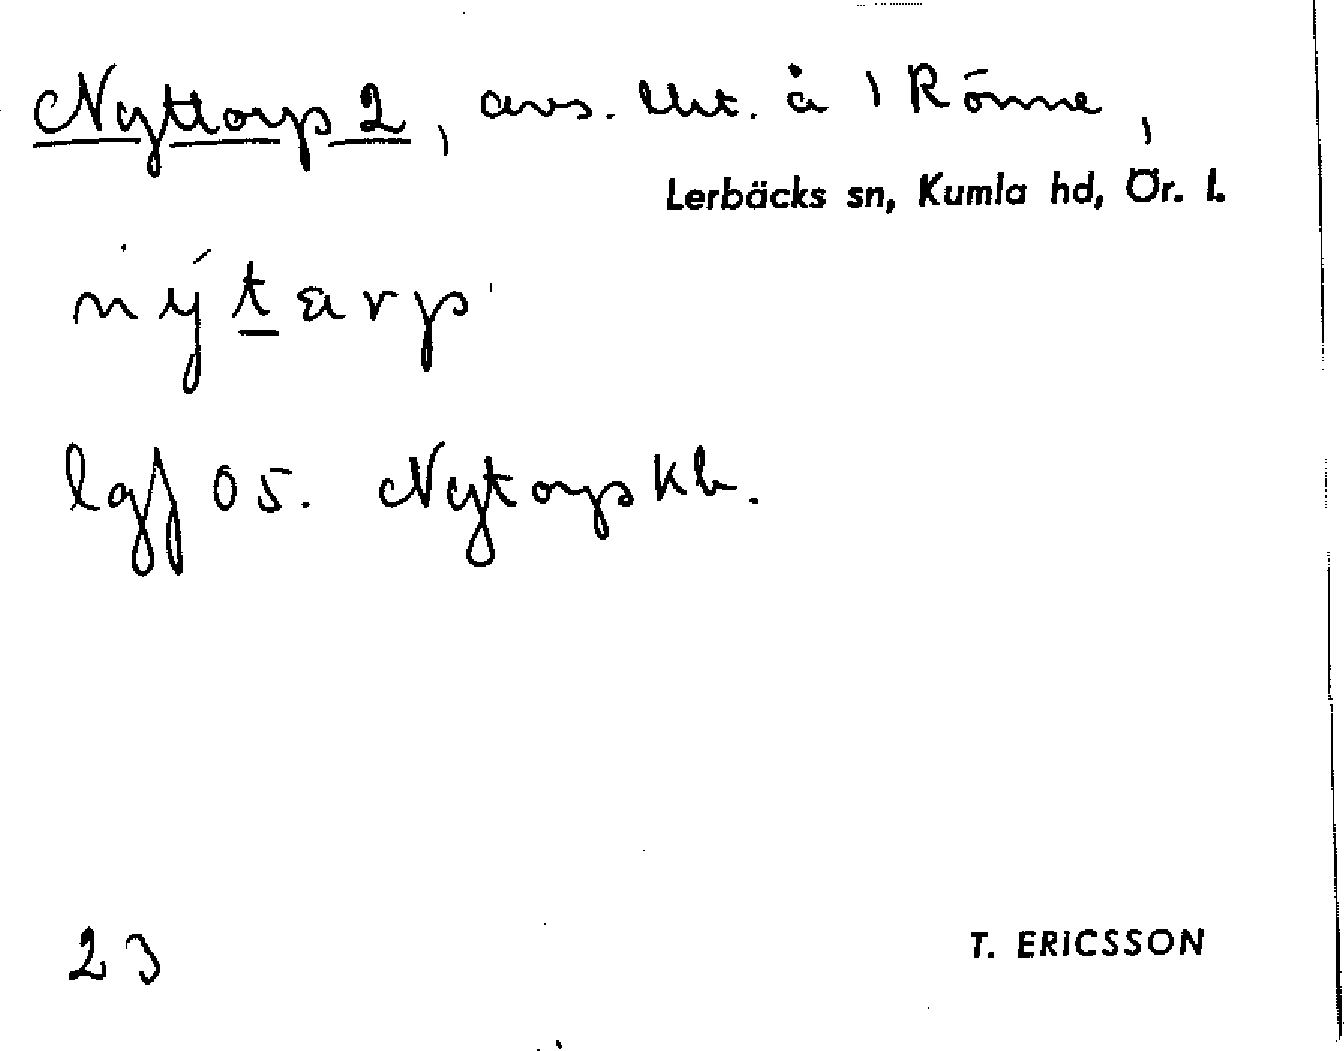 Nyttorp 2, avs. lht. å 1 Rönne,
Lerbäcks sn, Kumla hd, Ör. l.
nýtarp
lgf 05. Nytorp kb.
23
T. ERICSSON